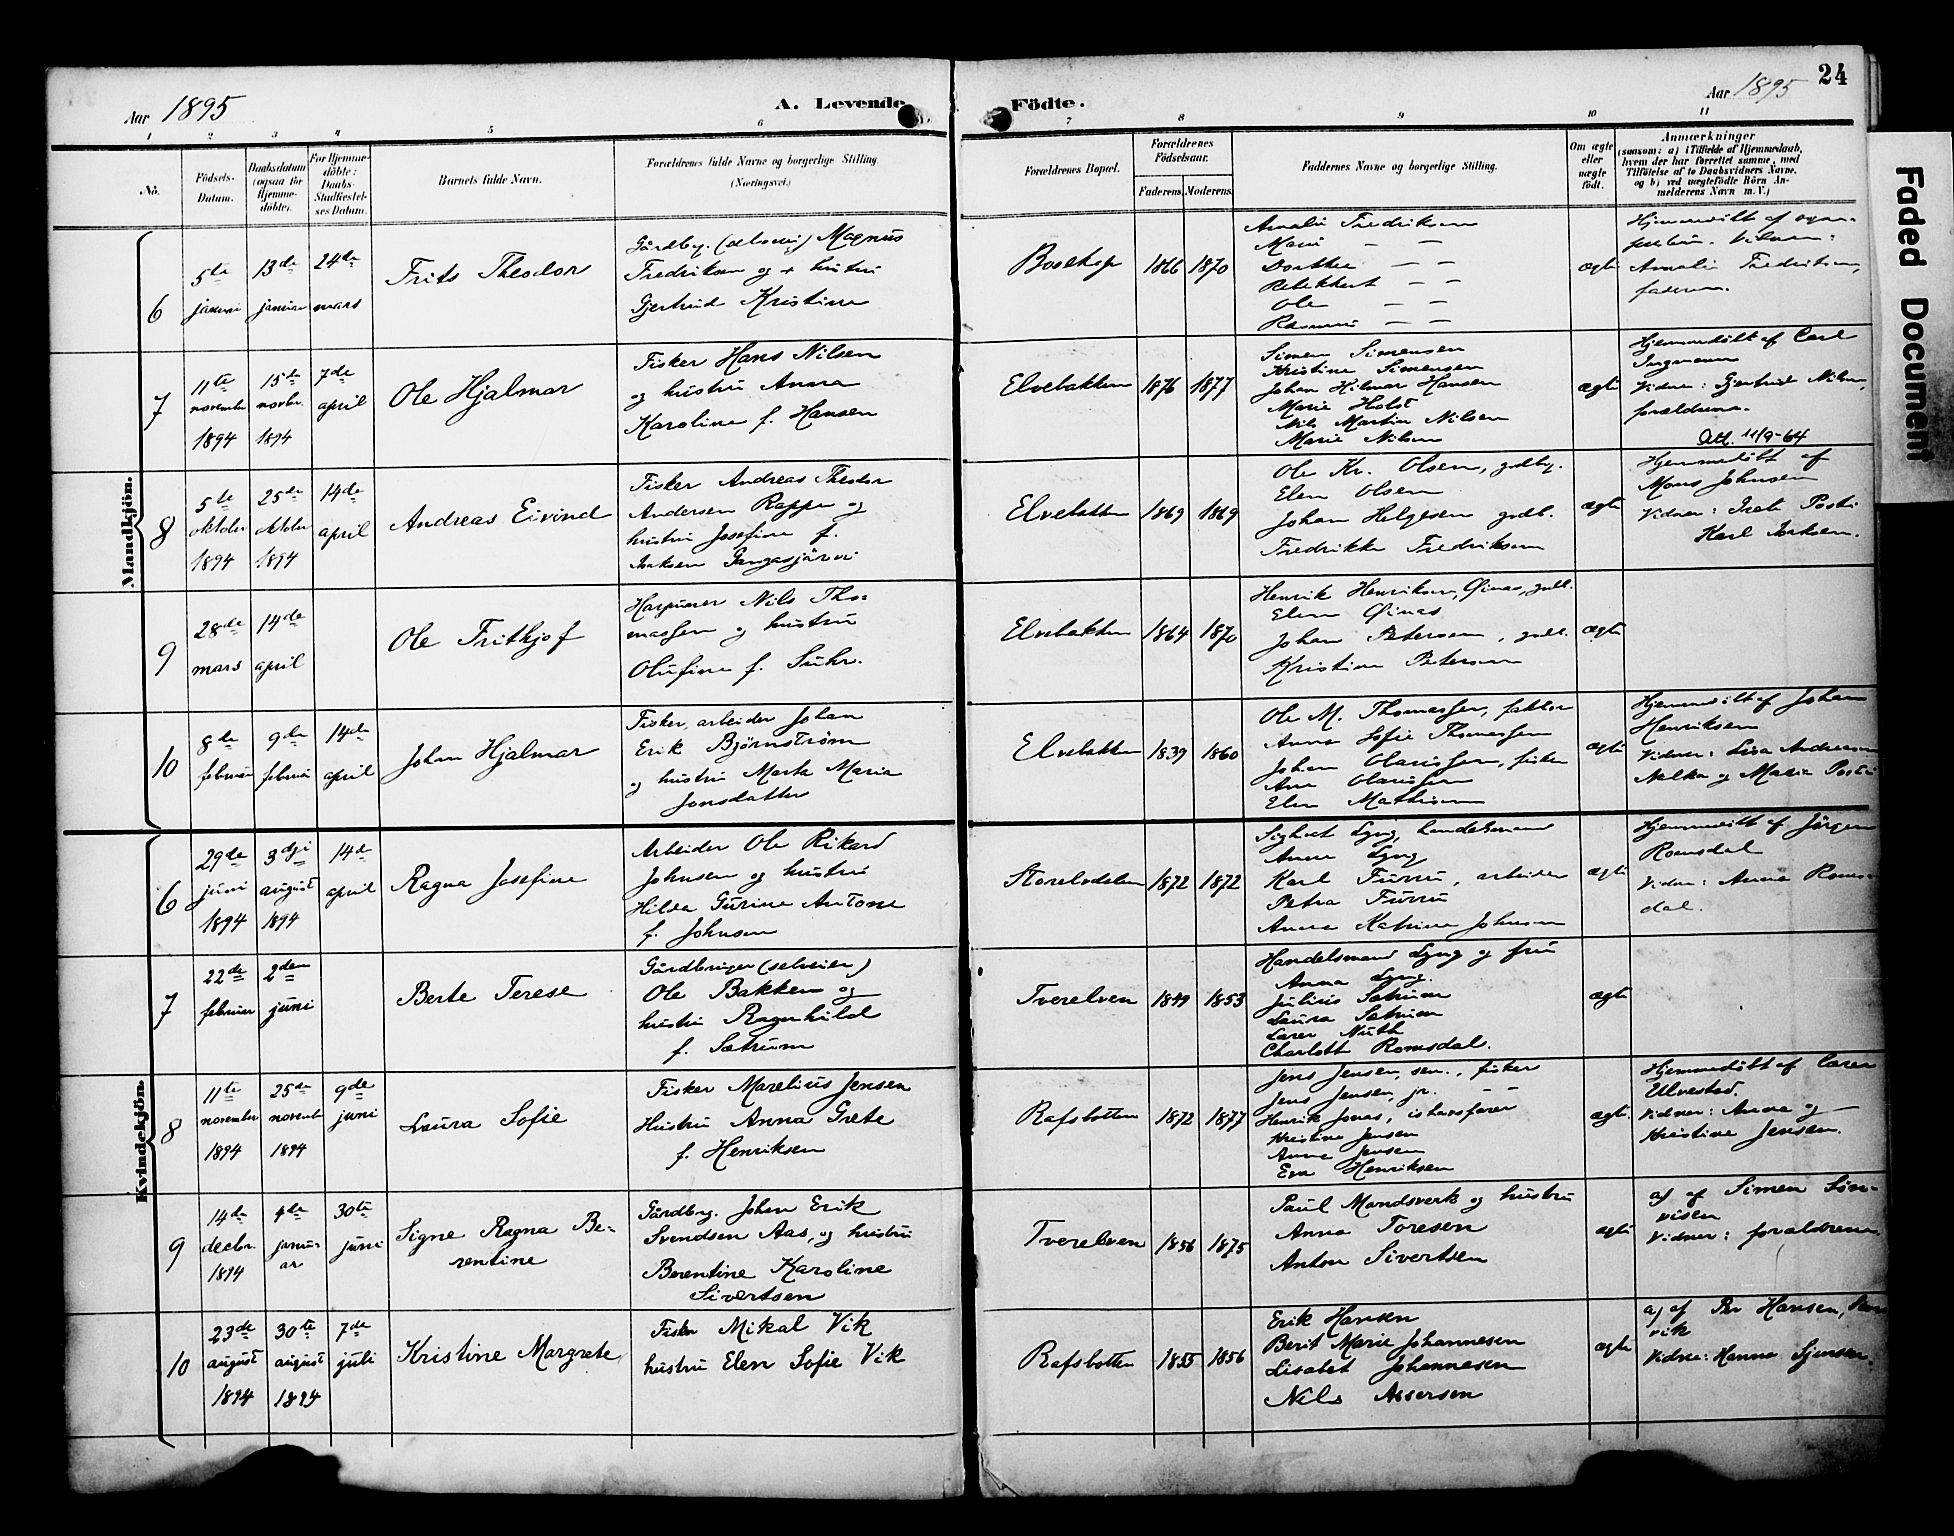 Aar 1895
A. Levende Födte.
Aar 1895
24
Faded Document
1 2 3 4 5 6 7 8 9 10 11
No.
Födsels-
Datum.
Daabsdatum
(ogsaa for
Hjemme-
döbte).
For Hjemme-
döbte:
Daabs-
Stadfæstel-
ses Datum.
Barnets fulde Navn.
Forældrenes fulde Navne og borgerlige Stilling.
(Næringsvei.)
Forældrenes Bopæl.
Forældrenes
Födselsaar.
Faderens. Moderens.
Faddernes Navne og borgerlige Stilling.
Om ægte
eller
uægte
födt.
Anmærkninger
(saasom: a) i Tilfælde af Hjemmedaab,
hvem der har forrettet samme, med
Tilföielse af to Daabsvidners Navne,
og b) ved uægtefödte Börn An-
melderens Navn m. V.)
Mandkjön.
6
5te
januar
13de
januar
24de
mars
Frits Theodor
Gårdbr. (selveier) Magnus
Fredriksen og hustru
Gjertrud Kristine
Bosekop
1866
1870
Amalie Fredriksen
Marie — —
Dorthea — —
— —
Ole — —
Rasmus — —
ægte
Hjemmedöbt af
Amalie Fredriksen,
faderen.
7
11te
november
1894
15de
novbr.
1894
7de
april
Ole Hjalmar
Fisker Hans Nilsen
og hustru Anna
Karoline f. Hansen
Elvebakken
1876
1877
Simen Simensen
Kristine Simensen
Johan Hilmar Hansen
Marie Holst
Nils Martin Nilsen
Marie Nilsen
ægte
Hjemmedöbt af Carl
Ingmann
Vidner: Gjertrud Nilsen,
forældrene.
Att. 11/9-64
8
5te
oktober
1894
25de
oktober
1894
14de
april
Andreas Eivind
Fisker Andreas Theodor
Andersen Rappe og
hustru Josefine f.
Isaksen Gangasjärvi
Elvebakken
1869
1869
Ole Kr. Olsen, gårdbr.
Elen Olsen
Johan Helgesen gårdb.
Fredrikke Fredriksen
ægte
Hjemmedöbt af
Mons Johnsen
Vidner: Posti
Karl Isaksen.
9
28de
mars
14de
april
Ole Frithjof
Harpuner Nils Tho-
massen og hustru
Olufine f. Suhr.
Elvebakken
1864
1870
Henrik Henriksen, Øinas, gårdb.
Elen Øinas
Johan Petersen, gårdb.
Kristine Petersen
ægte
10
8de
februar
9de
februar
14de
april
Johan Hjalmar
Fisker, arbeider Johan
Erik Bjørnström
og hustru Marta Maria
Jonsdatter
Elvebakken
1839
1860
Ole M. Thomassen, faktor
Anna Sofie Thomassen
Johan Olaussen, fisker
Ane Olaussen
Elen Mathisen
ægte
Hjemmedöbt af Johan
Henriksen
Vidner: Lisa Andreasen
Nalka og Maria Posti
Kvindekjön.
6
29de
juni
1894
3dje
august
1894
14de
april
Ragna Josefine
Arbeider Ole Rikard
Johnsen og hustru
Hilda Gurine Antone
f. Johnsen
Storelvdalen
1872
1872
Sighert Lyng, handelsmand
Anna Lyng
Karl Furru, arbeider
Petra Furru
Anna Katrine Johnsen
ægte
Hjemmedöbt af Jörgen
Romsdal
Vidner: Anna Roms-
dal.
7
22de
februar
2den
juni
Berte Terese
Gårdbruger (selveier)
Ole Bakken og
hustru Ragnhild
f. Sætrum
Tverelven
1849
1853
Handelsmand Lyng og fru
Anna Lyng.
Julius Sætrum
Laura Sætrum
Laver Nuth
Charlott Romsdal.
ægte
8
11te
november
1894
25de
november
1894
9de
juni
Laura Sofie
Fisker Marelius Jensen
Hustru Anna Grete
f. Henriksen
Rafsbotten
1872
1877
Jens Jensen, sen., fisker
Jens Jensen, jr. — —
Henrik Jonas, ishavsfarer
Kristine Jensen
Anne Jensen
Eva Henriksen
ægte.
Hjemmedöbt af Caren
Ulvestad.
Vidner: Anna og
Kristine Jensen.
9
14de
decbr.
1894
janu-
ar
30te
juni
Signe Ragna Be-
rentine
Gårdbrg. Johan Erik
Svendsen Aas, og hustru
Berentine Karoline
Sivertsen
Tverelven
1856
1875
Paul Mandsverk og hustru
Anna Toresen
Anton Sivertsen
ægte
a) af Simen Sön-
visen
Vidner: forældrene
10
23de
august
1894
30te
august
1894
7de
juli
Kristine Margrete
Fisker Mikal Vik
hustru Elen Sofie Vik
Rafsbotten
1855
1856
Erik Hansen
Berit Marie Johannesen
Lisabet Johannesen
Nils Assersen
ægte
a) af Per Hansen,
vik
Vidner: Hanna Sjursen.